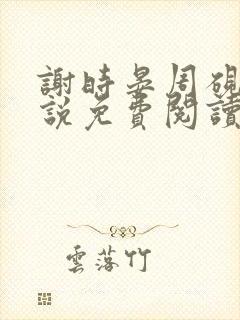 謝時晏周硯
說免費閱讀
雲落竹